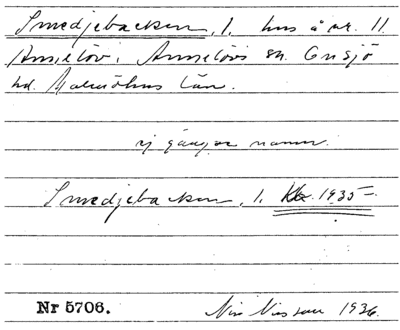 Smedjebacken, l. hus å nr. 11
Annelöv, Annelövs sn. Onsjö
hd. Malmöhus län.
ej gängse namn.
Smedjebacken, l. Kbr. 1935
Nr 5706. Nils Nilsson 1936.